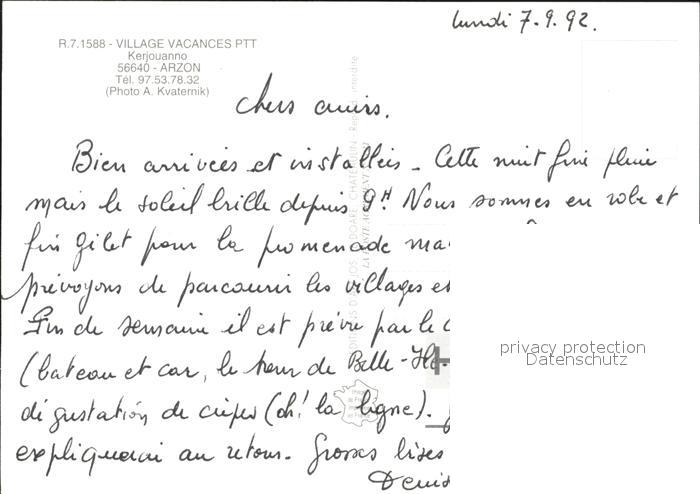 lundi 7.9.92.
R.7.1588 - VILLAGE VACANCES PTT
Kerjouanno
56640 - ARZON
Tél. 97.53.78.32
(Photo A. Kvaternik)
Chers amis,
Bien arrivées et installées - Cette nuit fine pluie
mais le soleil brille depuis 9H. Nous sommes en robe et
fin gilet pour la promenade ma
prévoyons de parcourir les villages es
Fin de semaine il est prévu par le C
(bateau et car, le tour de Belle-Ile.
dégustation de crêpes (oh! la ligne).
expliquerai au retour. Grosses bises
Denis
privacy protection
Datenschutz